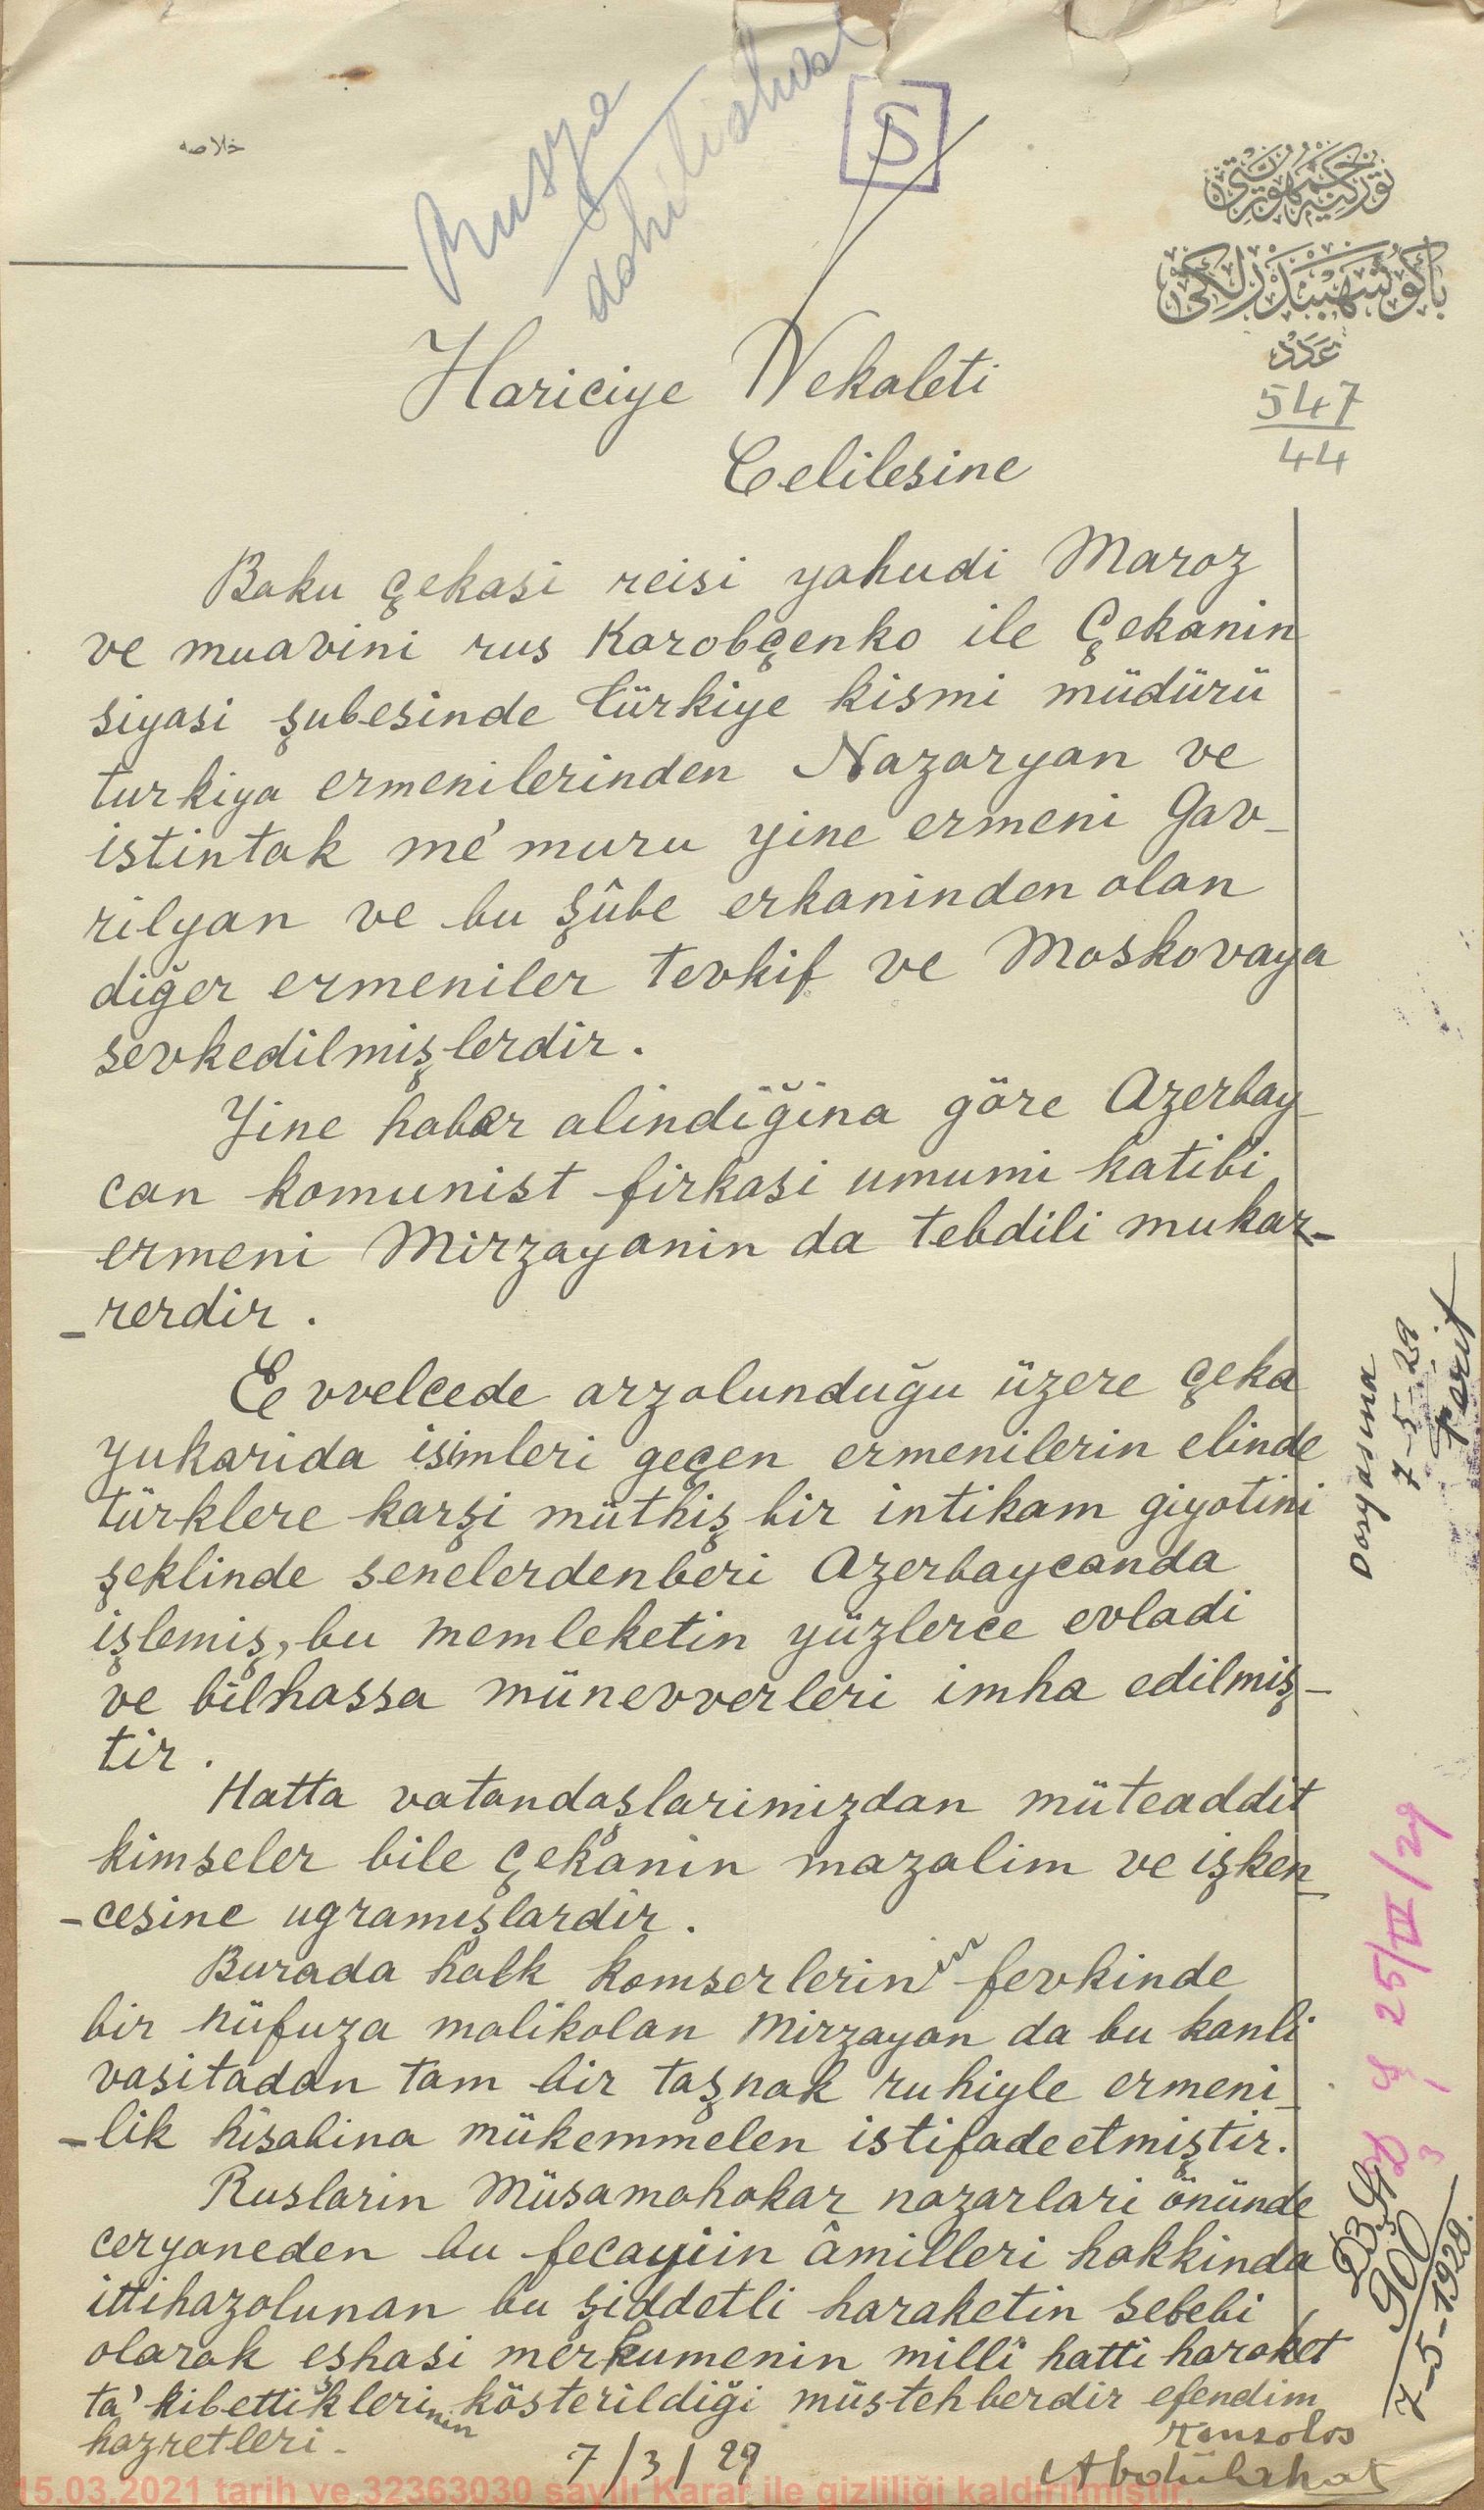 خلاصه
Rusya
dahilishval
S
توركيه جمهوريتى
باكو شهبندرلكى
عدد
547
44
Hariciye Vekaleti
Celilesine
Baku çekasi reisi yahudi Maroz
ve muavini rus Karobçenko ile Çekanin
siyasi şubesinde türkiye kismi müdürü
turkiya ermenilerinden Nazaryan ve
istintak me'muru yine ermeni Gav-
rilyan ve bu şûbe erkaninden olan
diğer ermeniler tevkif ve Moskovaya
sevkedilmişlerdir.
Yine haber alindiğina göre Azerbay-
can komunist firkasi umumi katibi
ermeni Mirzayanin da tebdili mukar-
-rerdir.
Evvelcede arzolunduğu üzere çeka
yukarida isimleri geçen ermenilerin elinde
türklere karşi müthiş bir intikam giyotini
şeklinde senelerdenberi Azerbaycanda
işlemiş, bu memleketin yüzlerce evladi
ve bilhassa münevverleri imha edilmiş-
tir.
Hatta vatandaşlarimizdan müteaddit
kimseler bile çekanin mazalim ve işken-
-cesine ugramışlardir.
Burada halk komserlerinin fevkinde
bir nüfuza malikolan Mirzayan da bu kanli
vasitadan tam bir taşnak ruhiyle ermeni-
-lik hisabina mükemmelen istifadeetmiştir.
Ruslarin Müsamahakar nazarlari önünde
ceryaneden bu fecayiin âmilleri hakkinda
ittihazolunan bu şiddetli haraketin sebebi
olarak eşhasi merkumenin milli hatti haraket
ta'kibettiklerinin kösterildiği müstehberdir efendim
hazretleri.
7/3/29
Konsolos
Abdülahat
Dosyasına
7-5-29
Ferit
25/III/29
900
7-5-1929.
15.03.2021 tarih ve 32363030 sayılı Karar ile gizliliği kaldırılmıştır.